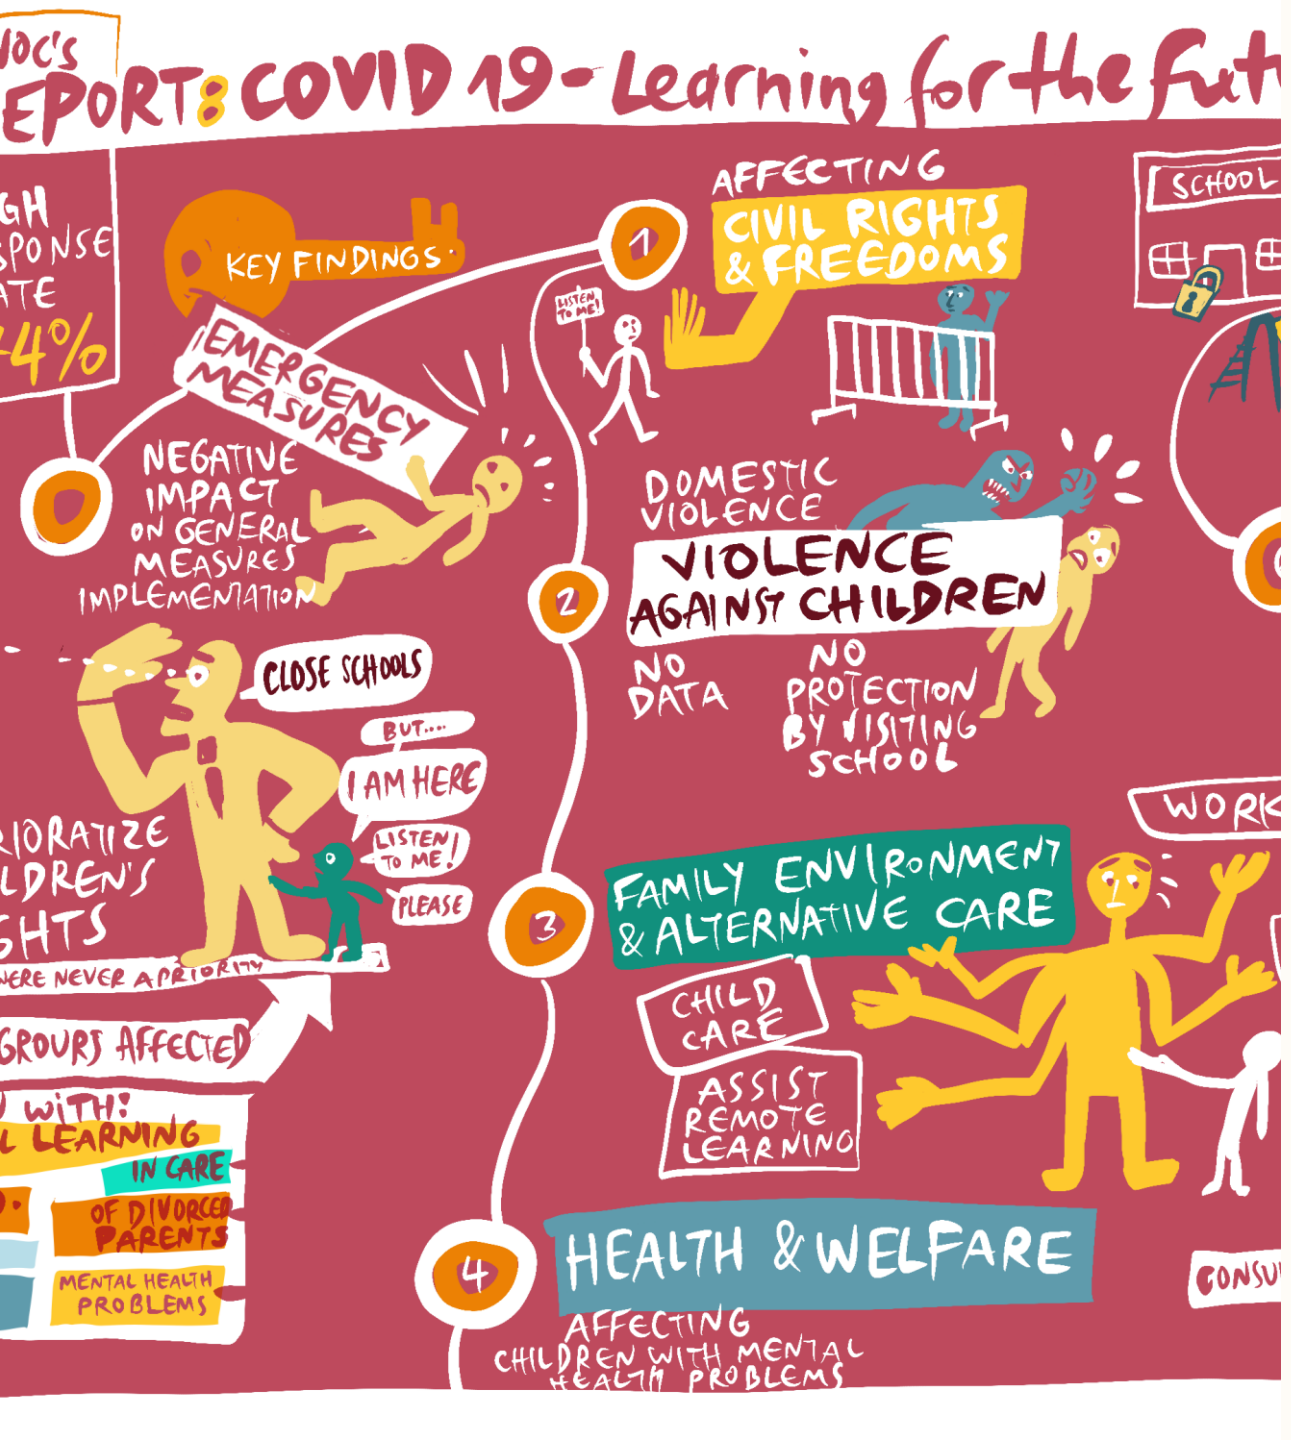 EPORT: COVID 19 - Learning for the Fut
GH
SPONSE
ATE
44%
KEY FINDINGS
EMERGENCY
MEASURES
NEGATIVE
IMPACT
ON GENERAL
MEASURES
IMPLEMENTATION
CLOSE SCHOOLS
BUT....
I AM HERE
LISTEN
TO ME!
PLEASE
RIORATIZE
LDREN'S
GHTS
WERE NEVER A PRIORITY
GROUPS AFFECTED
WITH:
L LEARNING
IN CARE
OF DIVORCED
PARENTS
MENTAL HEALTH
PROBLEMS
1
AFFECTING
CIVIL RIGHTS
& FREEDOMS
LISTEN
TO ME!
2
DOMESTIC
VIOLENCE
VIOLENCE
AGAINST CHILDREN
NO
DATA
NO
PROTECTION
BY VISITING
SCHOOL
3
FAMILY ENVIRONMENT
& ALTERNATIVE CARE
CHILD
CARE
ASSIST
REMOTE
LEARNING
4
HEALTH & WELFARE
AFFECTING
CHILDREN WITH MENTAL
HEALTH PROBLEMS
SCHOOL
WORK
CONSU